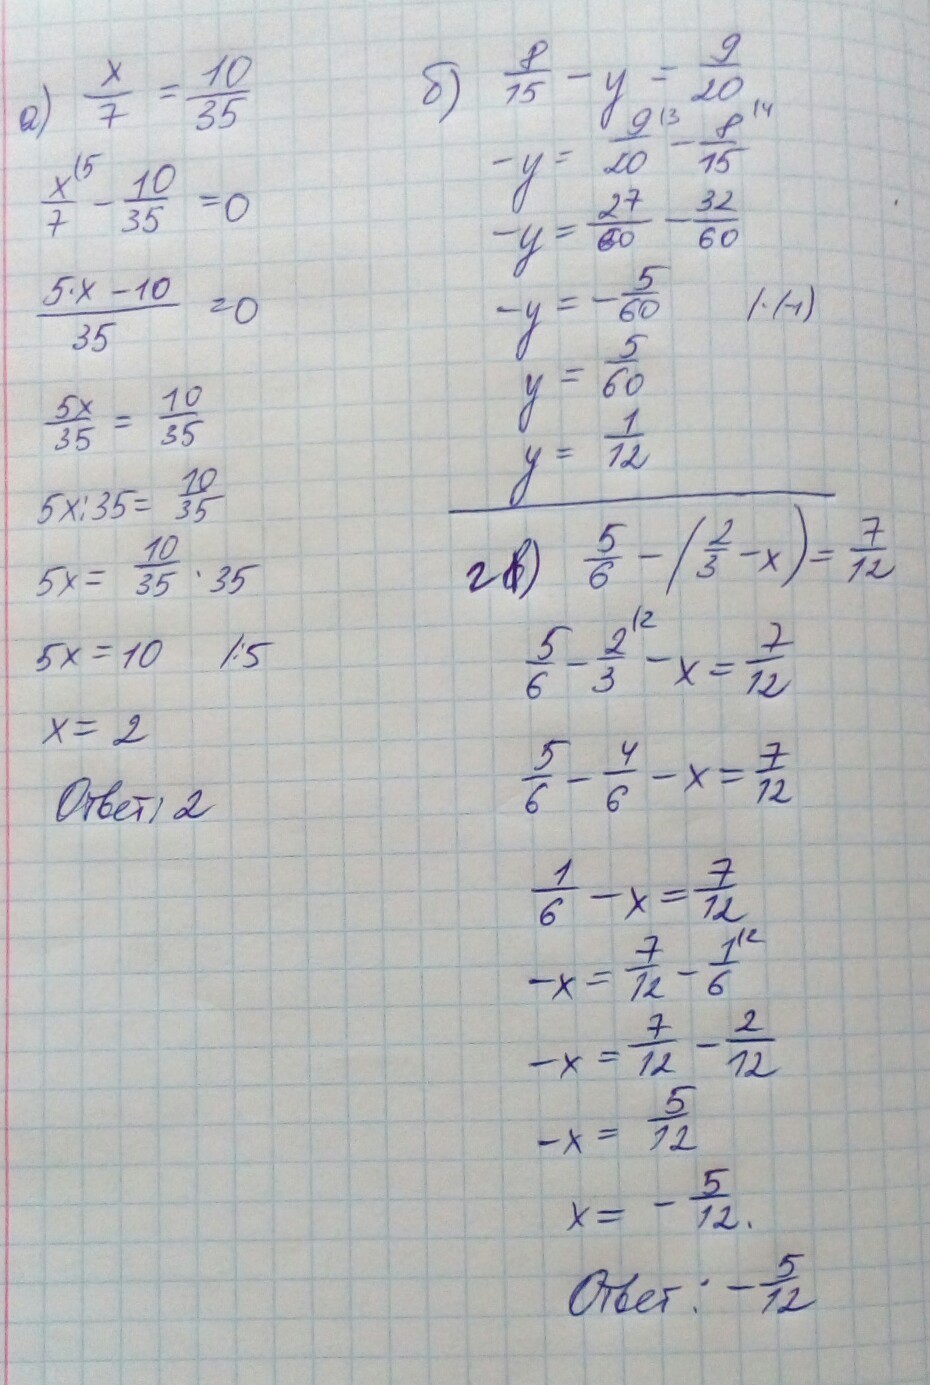 а) x/7 = 10/35
x/7 (5 - 10/35 = 0
5·x - 10 / 35 = 0
5x/35 = 10/35
5x:35 = 10/35
5x = 10/35 · 35
5x = 10 /:5
x = 2
Ответ: 2
б) 8/15 - y = 9/20
-y = 9/20 (3 - 8/15 (4
-y = 27/60 - 32/60
-y = - 5/60 /·(-1)
y = 5/60
y = 1/12
г) 5/6 - (2/3 - x) = 7/12
5/6 - 2/3 (2 - x = 7/12
5/6 - 4/6 - x = 7/12
1/6 - x = 7/12
-x = 7/12 - 1/6 (2
-x = 7/12 - 2/12
-x = 5/12
x = - 5/12.
Ответ: - 5/12